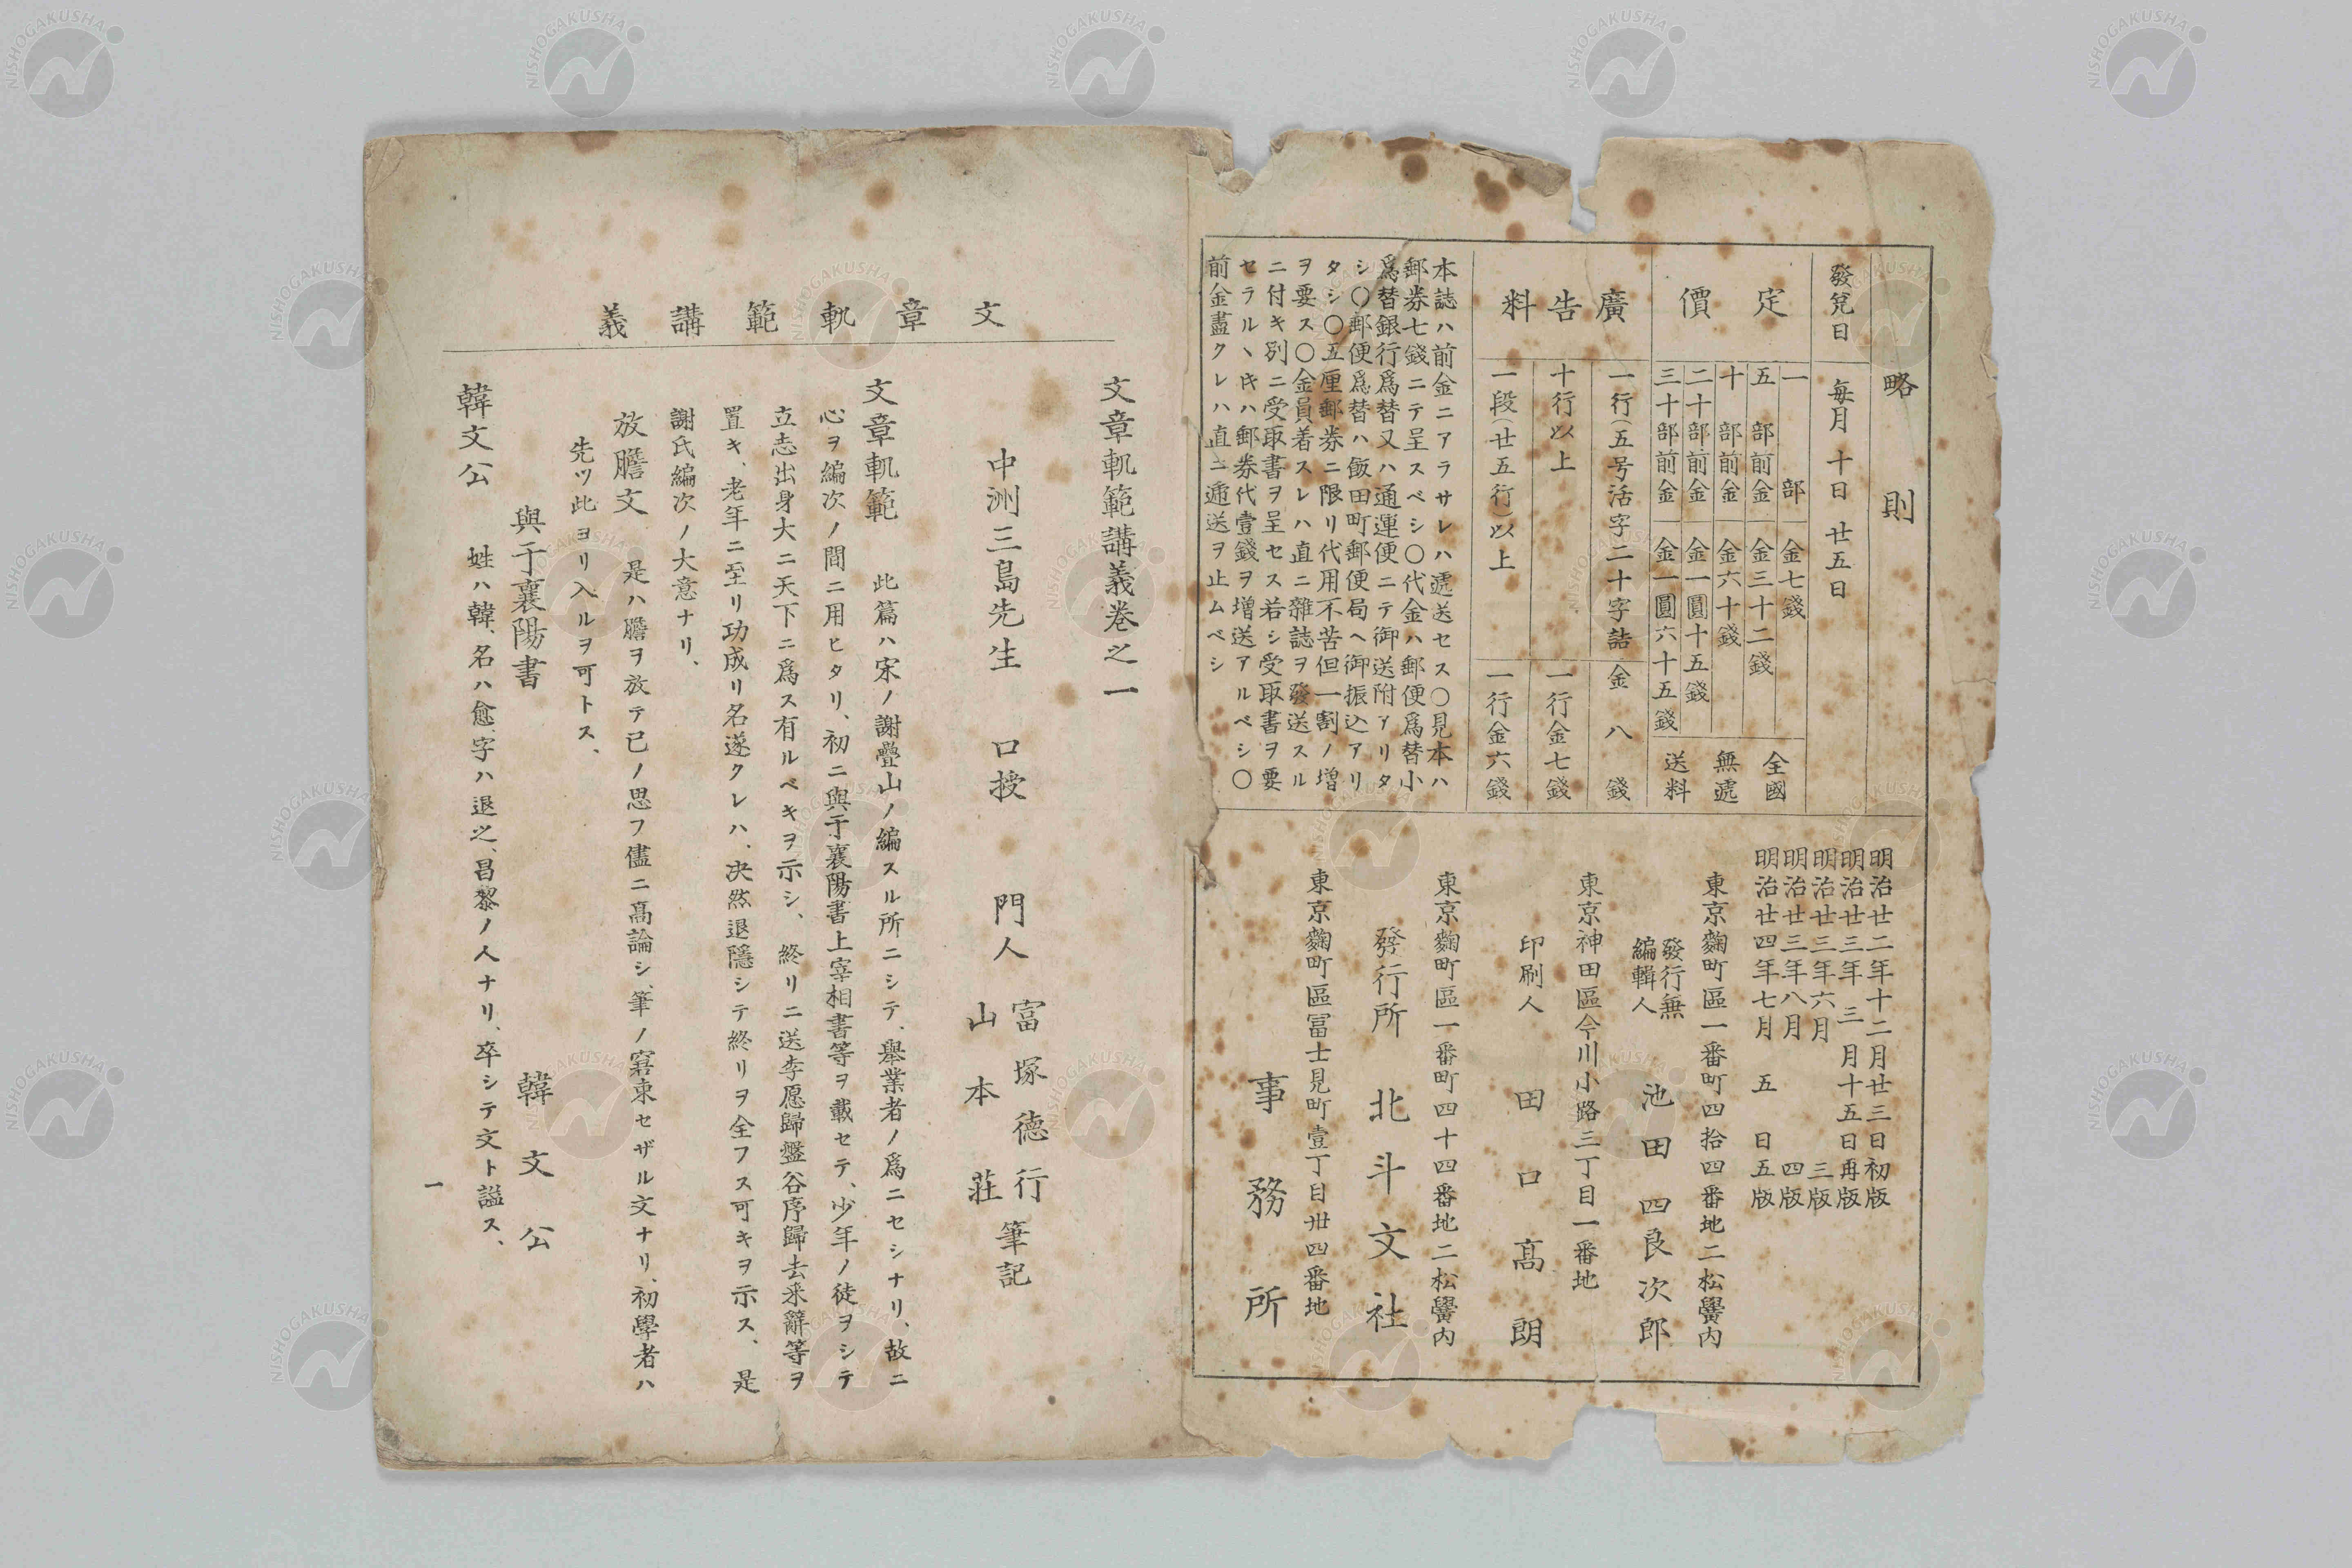 略則
發兌日
毎月十日廿五日
定價
一部 金七錢
五部前金 金三十二錢
十部前金 金六十錢
二十部前金 金一圓十五錢
三十部前金 金一圓六十五錢
全國
無遞
送料
廣告料
一行(五号活字二十字詰 金八錢
十行以上 一行金七錢
一段(廿五行)以上 一行金六錢
本誌ハ前金ニアラサレハ遞送セス〇見本ハ
郵券七錢ニテ呈スベシ〇代金ハ郵便爲替小
爲替銀行爲替又ハ通運便ニテ御送附アリタ
シ〇郵便爲替ハ飯田町郵便局ヘ御振込アリ
タシ〇五厘郵券ニ限リ代用不苦但一割ノ増
ヲ要ス〇金員着スレハ直ニ雜誌ヲ發送スル
ニ付キ別ニ受取書ヲ呈セス若シ受取書ヲ要
セラルヽ𪜈ハ郵券代壹錢ヲ増送アルベシ〇
前金盡クレハ直ニ遞送ヲ止ムベシ
明治廿二年十二月廿三日初版
明治廿三年三月十五日再版
明治廿三年六月三版
明治廿三年八月四版
明治廿四年七月五日五版
東京麴町區一番町四拾四番地二松學內
發行兼
編輯人
池田四良次郎
東京神田區今川小路三丁目一番地
印刷人 田口高朗
東京麴町區一番町四十四番地二松學內
發行所 北斗文社
東京麴町區冨士見町壹丁目卅四番地
事務所
文章軌範講義
文章軌範講義卷之一
中洲三島先生 口授 門人
富塚德行
山本莊
筆記
文章軌範 此篇ハ宋ノ謝疊山ノ編スル所ニシテ、舉業者ノ爲ニセシナリ、故ニ
心ヲ編次ノ間ニ用ヒタリ、初ニ與于襄陽書上宰相書等ヲ載セテ、少年ノ徒ヲシテ
立志出身大ニ天下ニ爲ス有ルベキヲ示シ、終リニ送李愿歸盤谷序歸去来辭等ヲ
置キ、老年ニ至リ功成リ名遂クレハ、決然退隱シテ終リヲ全フス可キヲ示ス、是
謝氏編次ノ大意ナリ、
放膽文 是ハ膽ヲ放テ己ノ思フ儘ニ高論シ、筆ノ窘束セザル文ナリ、初學者ハ
先ツ此ヨリ入ルヲ可トス、
與于襄陽書 韓文公
韓文公 姓ハ韓、名ハ愈、字ハ退之、昌黎ノ人ナリ、卒シテ文ト謚ス、
一
NISHOGAKUSHA